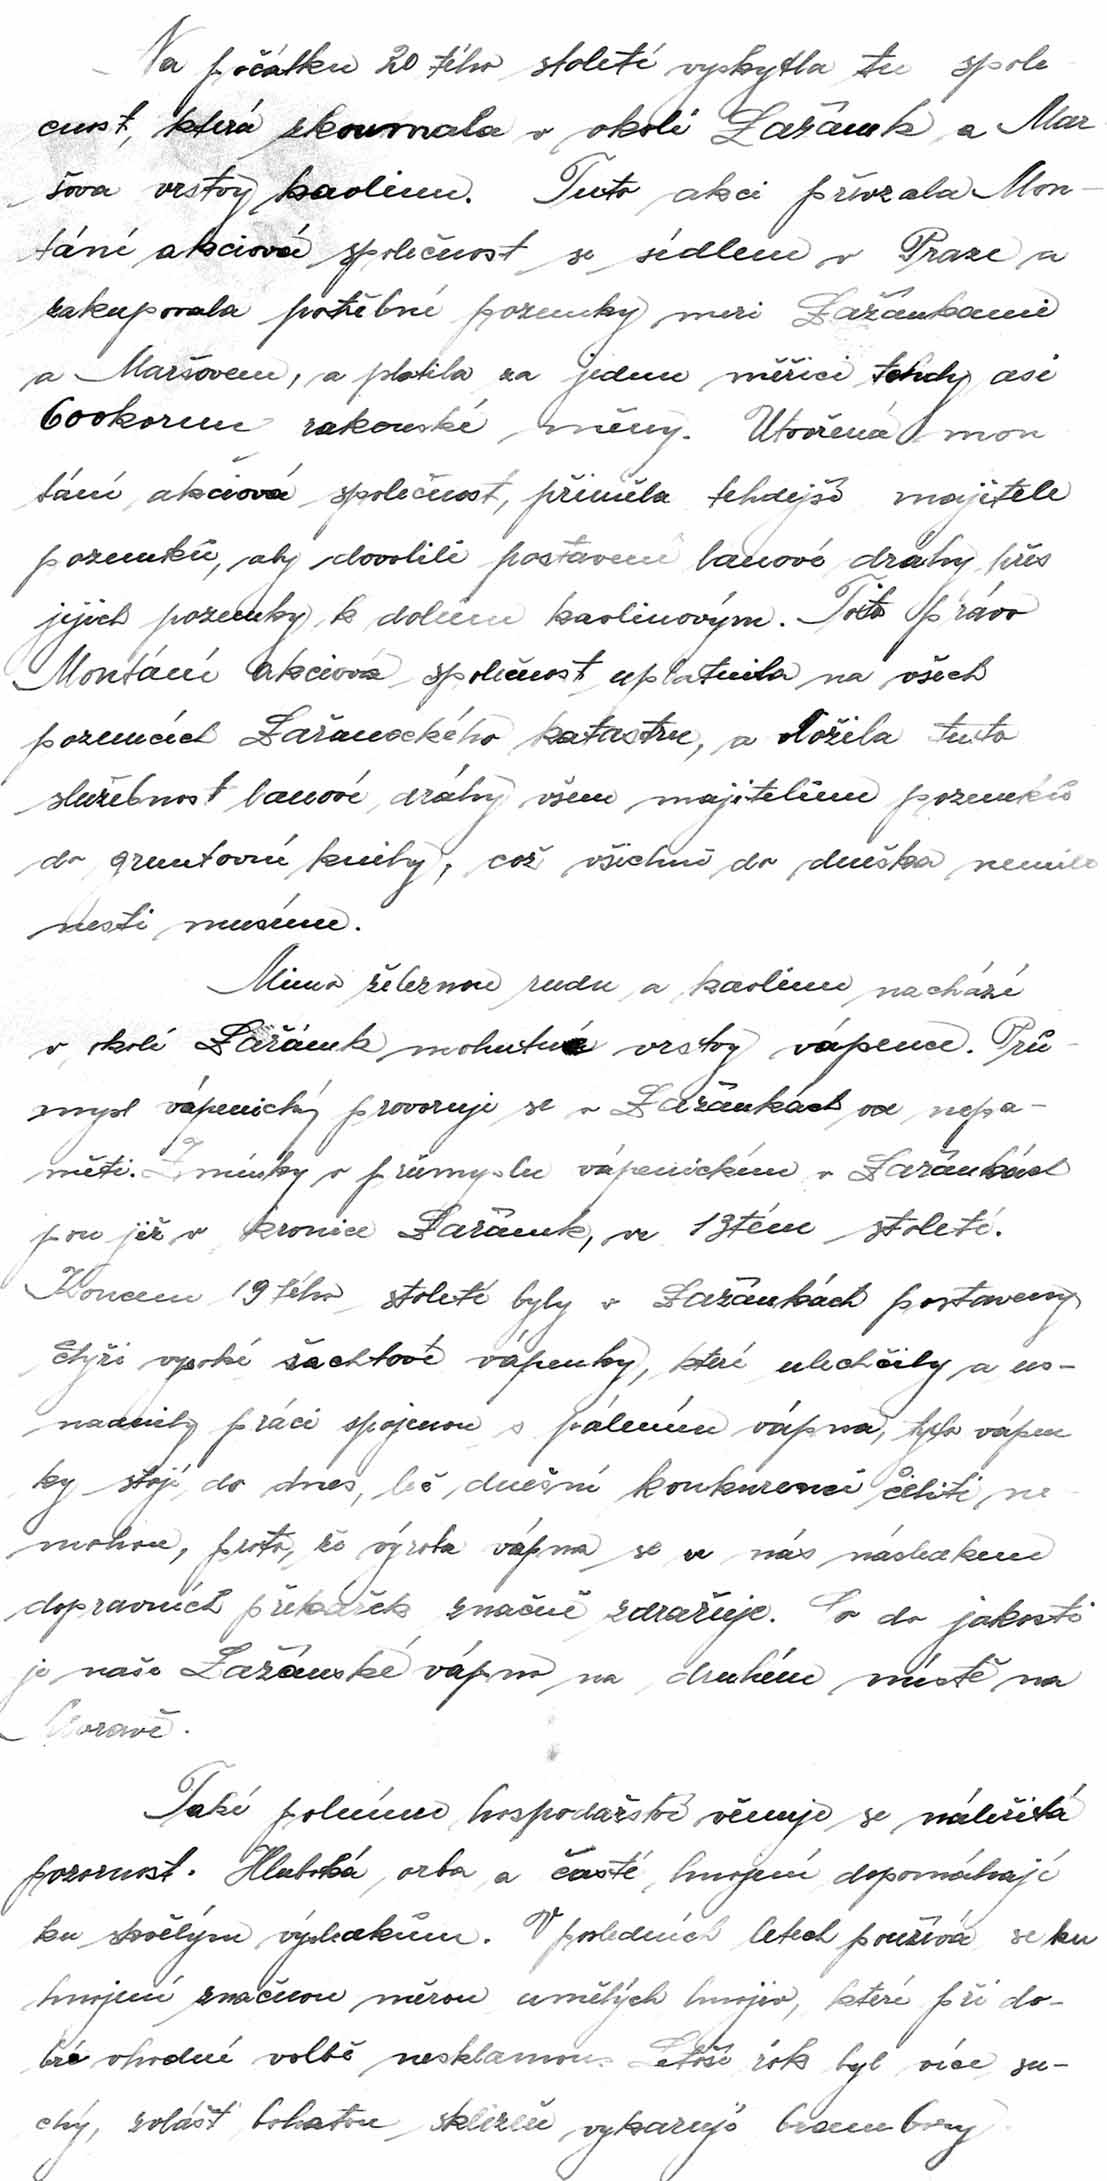 Na počátku 20 tého století vyskytla tu spole
čnost, která zkoumala v okolí Lažánek a Mar-
šova vrstvy kaolinu. Tuto akci převzala Mon-
tání akciová společnost se sídlem v Praze a
zakupovala potřebné pozemky mezi Lažánkami
a Maršovem, a platila za jednu měřici tehdy asi
600 korun rakouské měny. Utvořená mon
tání akciová společnost, přiměla tehdejší majitele
pozemků, aby dovolili postavení lanové dráhy přes
jejich pozemky k dolům kaolinovým. Toto právo
Montání akciová společnost uplatnila na všech
pozemcích Lažaneckého katastru, a vložila tuto
služebnost lanové dráhy všem majitelům pozemků
do gruntovní knihy, což všichni do dneška nemile
nesti musíme.
Mimo železnou rudu a kaolinu nachází
v okolí Lažánek mohutné vrstvy vápence. Prů-
mysl vápenický provozuje se v Lažánkách od nepa-
měti. Zmínky o průmyslu vápenickém v Lažánkách
jsou již v kronice Lažánek, ve 13tém století.
Koncem 19 tého století byly v Lažánkách postaveny
čtyři vysoké šachtové vápenky, které ulehčily a us-
nadnily práci spojenou s pálením vápna, tyto vápen
ky stojí do dnes, leč dnešní konkurenci čeliti ne-
mohou, proto, že výroba vápna se u nás následkem
dopravních překážek značně zdražuje. Co do jakosti
je naše Lažánské vápno na druhém místě na
Moravě.
Také polnímu hospodářství věnuje se náležitá
pozornost. Hluboká orba a časté hnojení dopomáhají
ku skvělým výsledkům. V posledních letech používá se ku
hnojení značnou měrou umělých hnojiv, které při do-
bré vhodné volbě nesklamou. Letoší rok byl více su-
chý, zvlášť bohatou sklizeň vykazují brambory